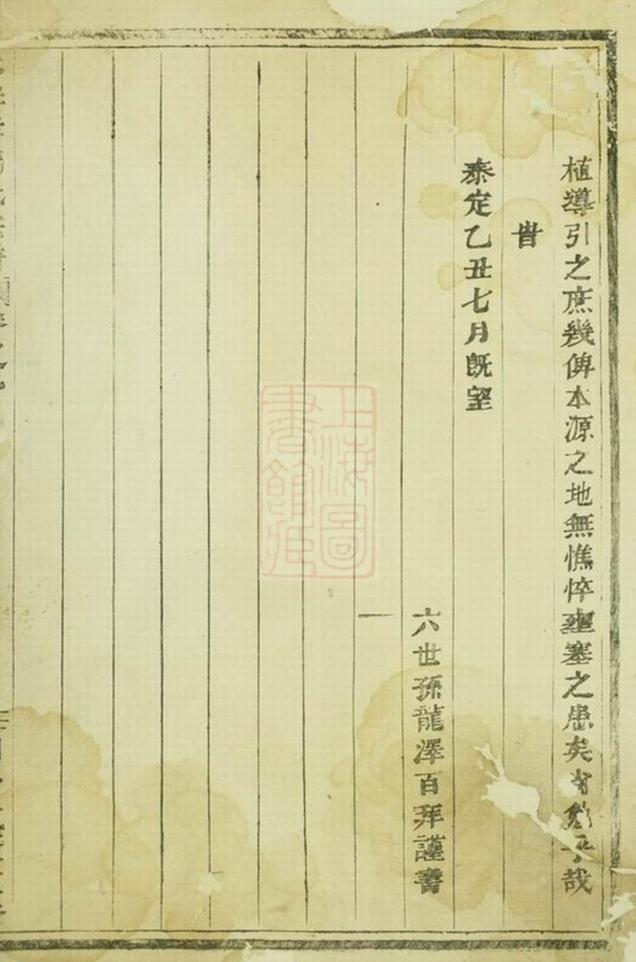 植導引之庶幾俾本源之地無憔悴壅塞之患矣哉
旹
泰定乙丑七月既望
六世孫龍澤百拜謹書
一
上海圖書館藏